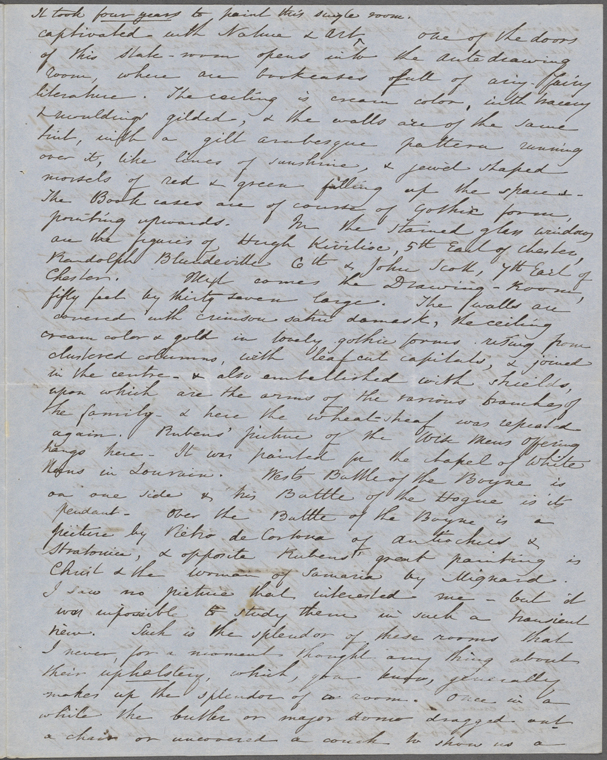 It took four years to paint this single room.
captivated with Nature & Art^ One of the doors
of this state-room opens into the ante drawing
room, where are bookcases full of airy fairy
literature. The ceiling is cream color, with tracery
& moulding gilded, & the walls are of the same
tint, with a gilt arabesque pattern running
over it, like lines of sunshine, & jewel shaped
morsels of red & green filling up the spaces.
The Book cases are of course of Gothic form,
pointing upwards. In the stained glass windows
are the figures of Hugh Kivilioc, 5th Earl of Chester,
Randolph Blundeville 6th & John Scott, 7th Earl of
Chester. Next comes the Drawing-Room,
fifty feet by thirty seven large. The walls are
covered with crimson satin damask, the ceiling
cream color & gold in lovely gothic forms rising from
clustered columns, with leaf cut capitals, & joined
in the centre & also embellished with shields,
upon which are the arms of the various branches of
the family & here the wheat-sheaf was repeated
again. Rubens' picture of the Wise Mens offering
hangs here. It was painted for the chapel of White
Nuns in Louvain. West's Battle of the Boyne is
on one side & his Battle of the Hogue is its
pendant. Over the Battle of the Boyne is a
picture by Pietro de Cortona of Antiochus &
Stratonice, & opposite Rubens' great painting is
Christ & the woman of Samaria by Mignard.
I saw no picture that interested me - but it
was impossible to study them in such a transient
view. Such is the splendor of these rooms that
I never for a moment thought any thing about
their upholstery, which, you know, generally
makes up the splendor of a room. Once in a
while the butler or major domo dragged out
a chair or uncovered a couch to show us a